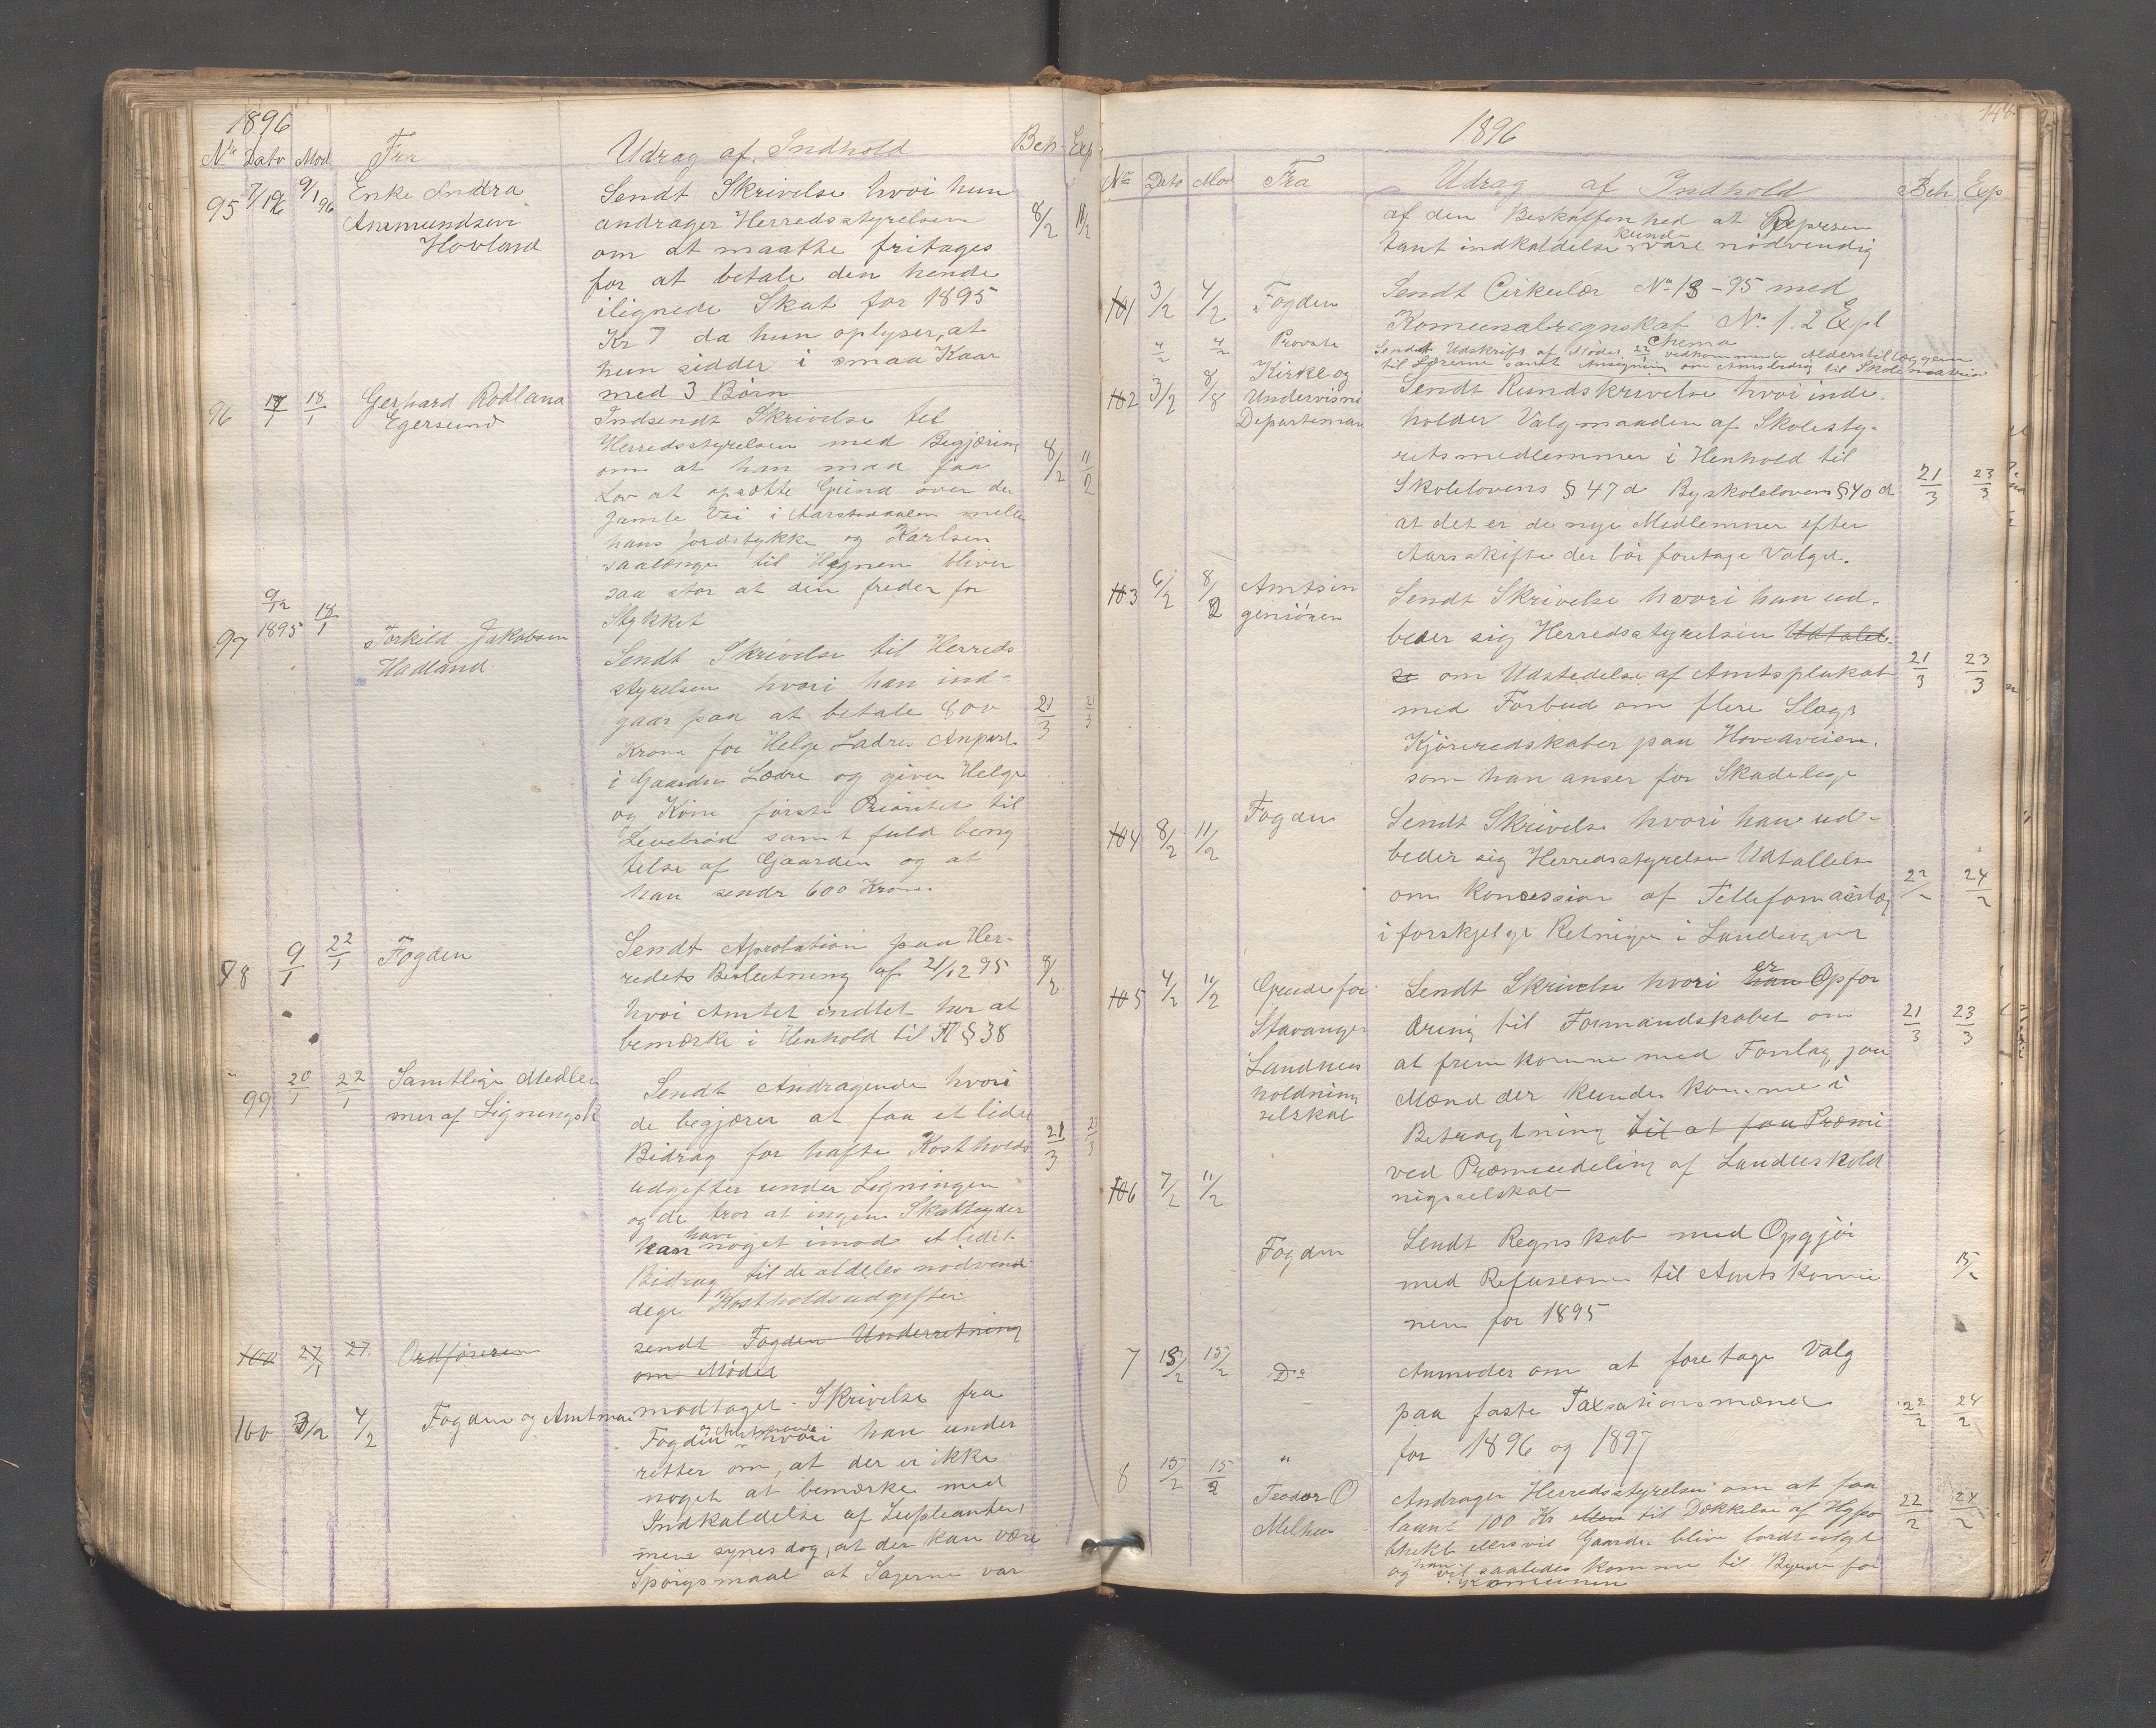 1896
No Dato Mod Fra Udrag af Indhold Beh Exp
95 7/1 96 9/1 96 Enke Andra
Aanmundsen
Hovland
Sendt Skrivelse hvoi hun
andrager Herredsstyrelsen 8/2 11/2
om at maatte fritages
for at betale den hende
ilignede Skat for 1895
Kr 7 da hun oplyser, at
hun sidder i smaa Kaar
med 3 Børn
96 17/1 18/1 Gerhard Rodland
Egersund
Indsendt Skrivelse tel
Herredsstyrelsen med Begjæring 8/2 11/2
om at han maa faa
Lov at opsætte Grind over den
gamle Vei i Aarstaddalen melle
hans Jordstykke og Karlsen
saalænge til Hegnen bliver
saa stor at den freder for
Stykket
97 9/12 1895 18/1 Torkild Jakobsen
Hadland
Sendt Skrivelse til Herreds
styrelsen hvori han ind-
gaar paa at betale 800 21/3 21/3
Krone for Helge Ladres Anpart
i Gaarden Lædre og giver Helge
og Kone første Prioritet til
Levebrød samt fuld beny
telse af Gaarden og at
han sendr 600 Krone.
98 9/1 22/1 Fogden
Sendt Aprobation paa Her-
redets Beslutning af 21/12 95 8/2
hvoi Amtet indtet har at
bemærke i Henhold til Fl § 38
99 20/1 22/1 Samtlige Medlem
mer af Ligningsk
Sendt Andragende hvori
de begjærer at faa et lidet
Bidrag for hafte Kostholds 21/3 21/3
udgifter under Ligningen
og de tror at ingen Skatteyder
kan have noget imod et lidet
Bidrag til de aldeles nødvend
dege Kostholdsudgifter
100 27/1 27. Ordføreren sendt Fogden Underretning
om Mødet
100 3/2 4/2 Fogden og Amtman modtaget Skrivelse fra
Fogden og Amtmand hvori han under
retter om, at der er ikke
noget at bemærke med
Indkaldelse af Supleanter,
mene synes dog, at der kan være
Spørgsmaal at Sagerne var
144
1896
No Dato Mod Fra Udrag af Indhold Beh Exp
af den Beskaffenhed at Represen
tant indkaldelse kunde være nødvendig
101 3/2 4/2 Fogden Sendt Cirkulær No 13-95 med
Komunalregnskab No 1. 2 Expl
Chema
4/2 4/2 Provste Sendt Udskrift af Møder 22/1 vedkommende Alderstillæggene
til Lærerne samt Ansøgning om Amtsbidrag til Skolevæsen
102 3/2 8/8 Kirke og
Undervisni
Departeman
Sendt Rundskrivelse hvoi inde.
holder Valgmaaden af Skolesty-
retsmedlemmer i Henhold til
Skolelovens § 47 d Byskolelovens § 40 d 21/3 23/3
at det er de nye Medlemmer efter
Aarsskifte der bør foretage Valget.
103 6/2 8/2 Amtsin
geniören
Sendt Skrivelse hvori han ud-
beder sig Herredsstyrelsen Udtalel-
se om Udstedelse af Amtsplakat 21/3 23/3
med Forbud om flere Slags
Kjøreredskaber paa Hovedveien.
som han anser for Skadelige
104 8/2 11/2 Fogden
Sendt Skrivelse hvori han ud-
beder sig Herredsstyrelsen Udtallelse
om Koncession af Tellefonanlæg 22/2 24/2
i forskjelge Retninger i Landsogner
105 4/2 11/2
Stavanger
Landhus
holdnings
selskab
Sendt Skrivelse hvori han er Opfor
dring til Formandskabet om 21/3 23/3
at fremkomme med Forslag paa
Mænd der kunde komme i
Betragtning til at faa Præmi
ved Præmieudeling af Landhushold
nigsselskab
106 7/2 11/2 Fogden
Sendt Regnskab med Opgjør
med Refusion til Amtskomu 15/2
nen for 1895
7 13/2 15/2 Do
Anmoder om at foretage Valg
paa faste Taxsationsmænd 22/2 24/2
for 1896 og 1897
8 15/2 15/2 "
Teodor O
Melhus
Andrager Herredsstyrelsen om at faa
laant 100 Kr til Dækkelse af Hypo 22/2 24/2
thekt ellers vil Gaarden blive bordtsolgt
og han vil saaledes komme til Byrde for
Komunen